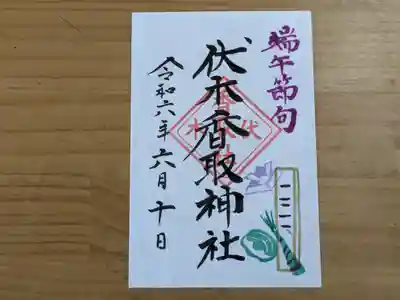 端午節句
伏木香取神社
令和六年六月十日